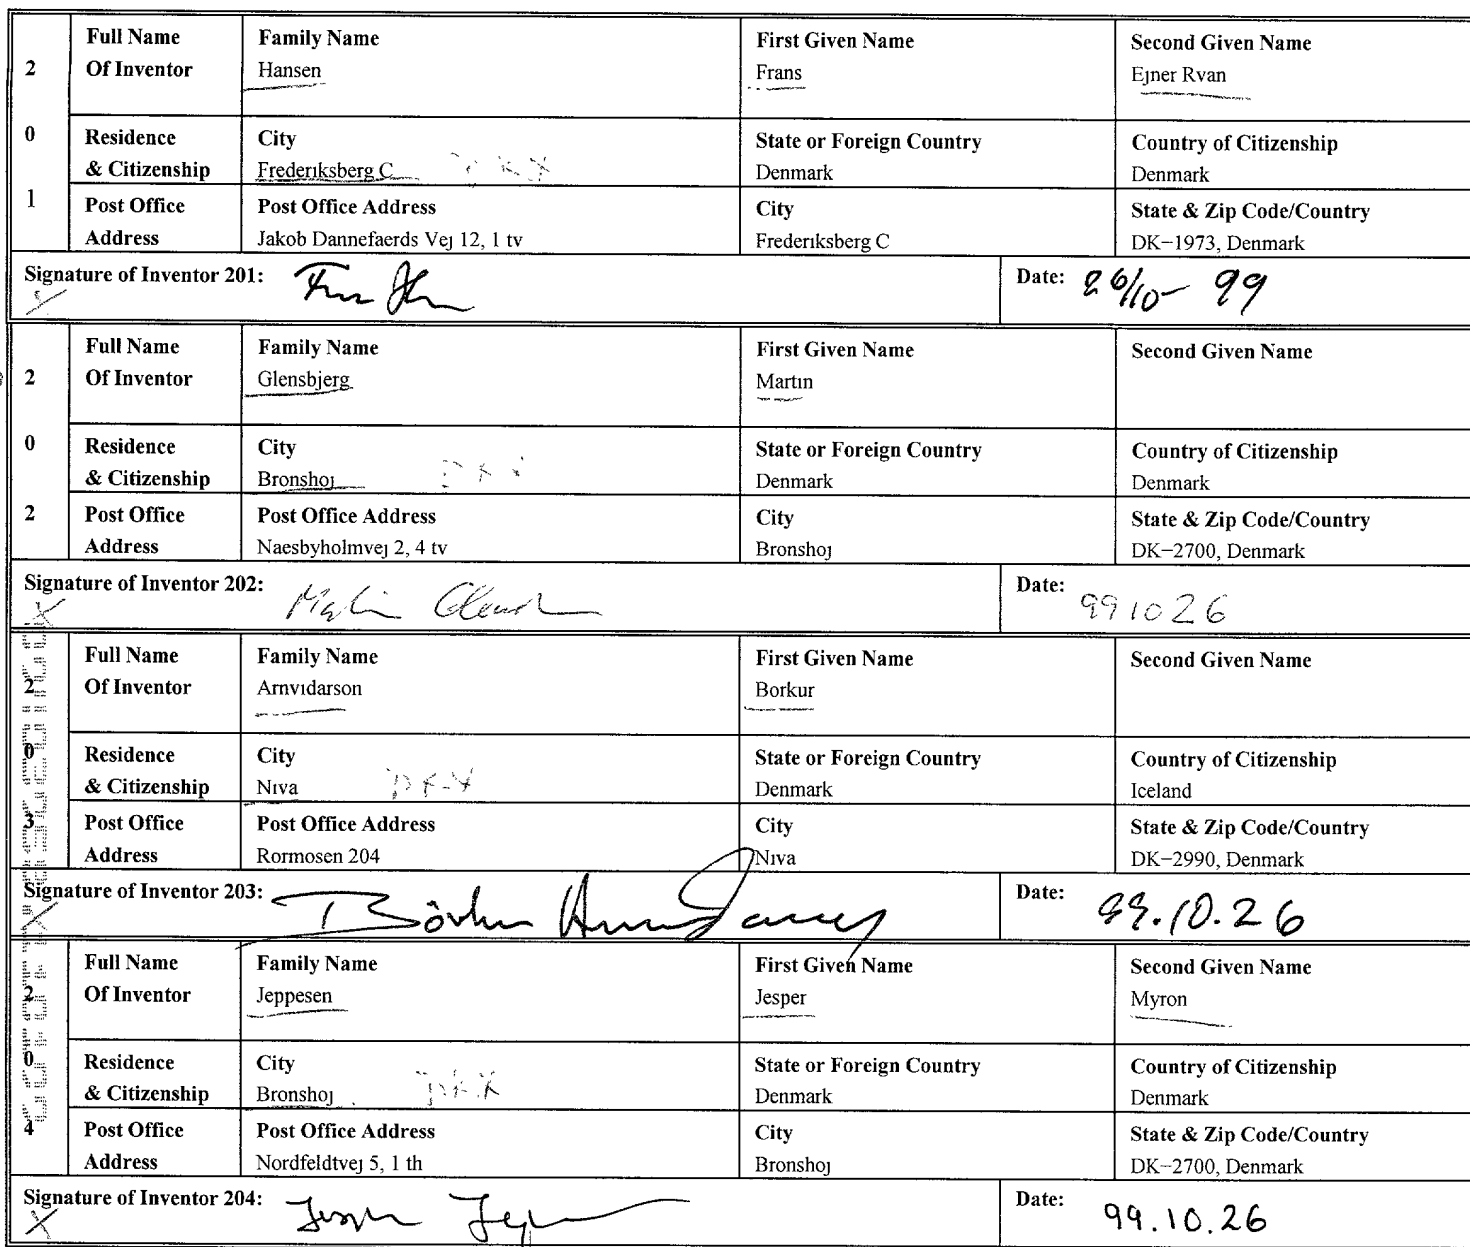 2 Full Name Of Inventor Family Name Hansen First Given Name Frans Second Given Name Ejner Rvan
0 Residence & Citizenship City Frederiksberg C DKX State or Foreign Country Denmark Country of Citizenship Denmark
1 Post Office Address Post Office Address Jakob Dannefaerds Vej 12, 1 tv City Frederiksberg C State & Zip Code/Country DK-1973, Denmark
Signature of Inventor 201: Date: 26/10- 99
2 Full Name Of Inventor Family Name Glensbjerg First Given Name Martin Second Given Name
0 Residence & Citizenship City Bronshoj DKX State or Foreign Country Denmark Country of Citizenship Denmark
2 Post Office Address Post Office Address Naesbyholmvej 2, 4 tv City Bronshoj State & Zip Code/Country DK-2700, Denmark
Signature of Inventor 202: Date: 991026
2 Full Name Of Inventor Family Name Arnvidarson First Given Name Borkur Second Given Name
0 Residence & Citizenship City Niva DKX State or Foreign Country Denmark Country of Citizenship Iceland
3 Post Office Address Post Office Address Rormosen 204 City Niva State & Zip Code/Country DK-2990, Denmark
Signature of Inventor 203: Date: 99.10.26
2 Full Name Of Inventor Family Name Jeppesen First Given Name Jesper Second Given Name Myron
0 Residence & Citizenship City Bronshoj DKX State or Foreign Country Denmark Country of Citizenship Denmark
4 Post Office Address Post Office Address Nordfeldtvej 5, 1 th City Bronshoj State & Zip Code/Country DK-2700, Denmark
Signature of Inventor 204: Date: 99.10.26